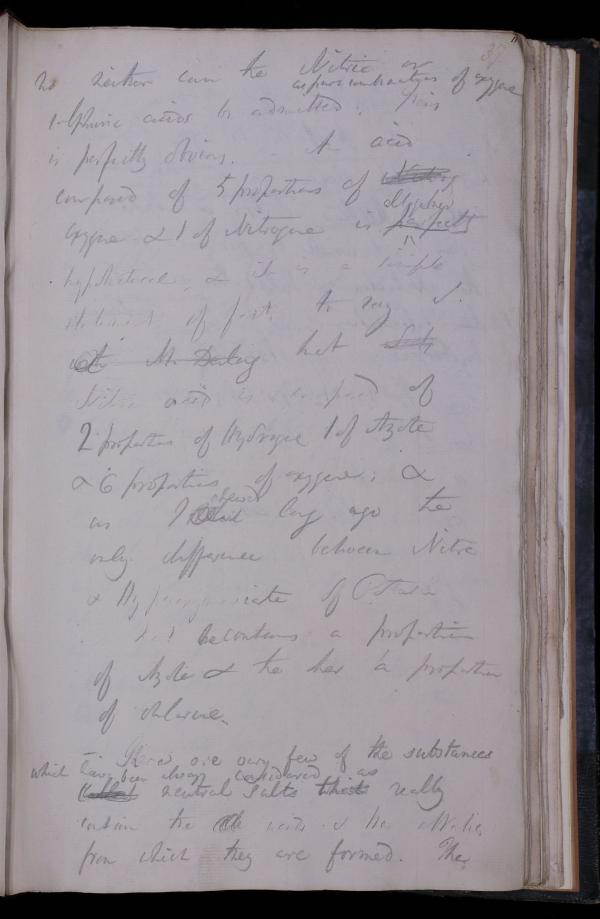 37
No neither can the Nitric or
as pure combinations of oxygene
sulphuric acids be admitted. This
is perfectly obvious. A acid
composed of 5 proportions of
altogether
oxygene & 1 of Nitrogene is perfectly
hypothetical, & it is a simple
statement of fact to say
Mr that
Nitric acid is composed of
2 proportions of Hydrogene 1 of Azote
& 6 proportions of oxygene; &
as I showed long ago the
only difference between Nitre
& Hyperoxymuriate of Potassa
that contains a proportion
of Azote & the her a proportion
of chlorine.
There are very few of the substances
which have been always considered as
called neutral salts which really
contain the acids & the alkalies
from which they are formed. The